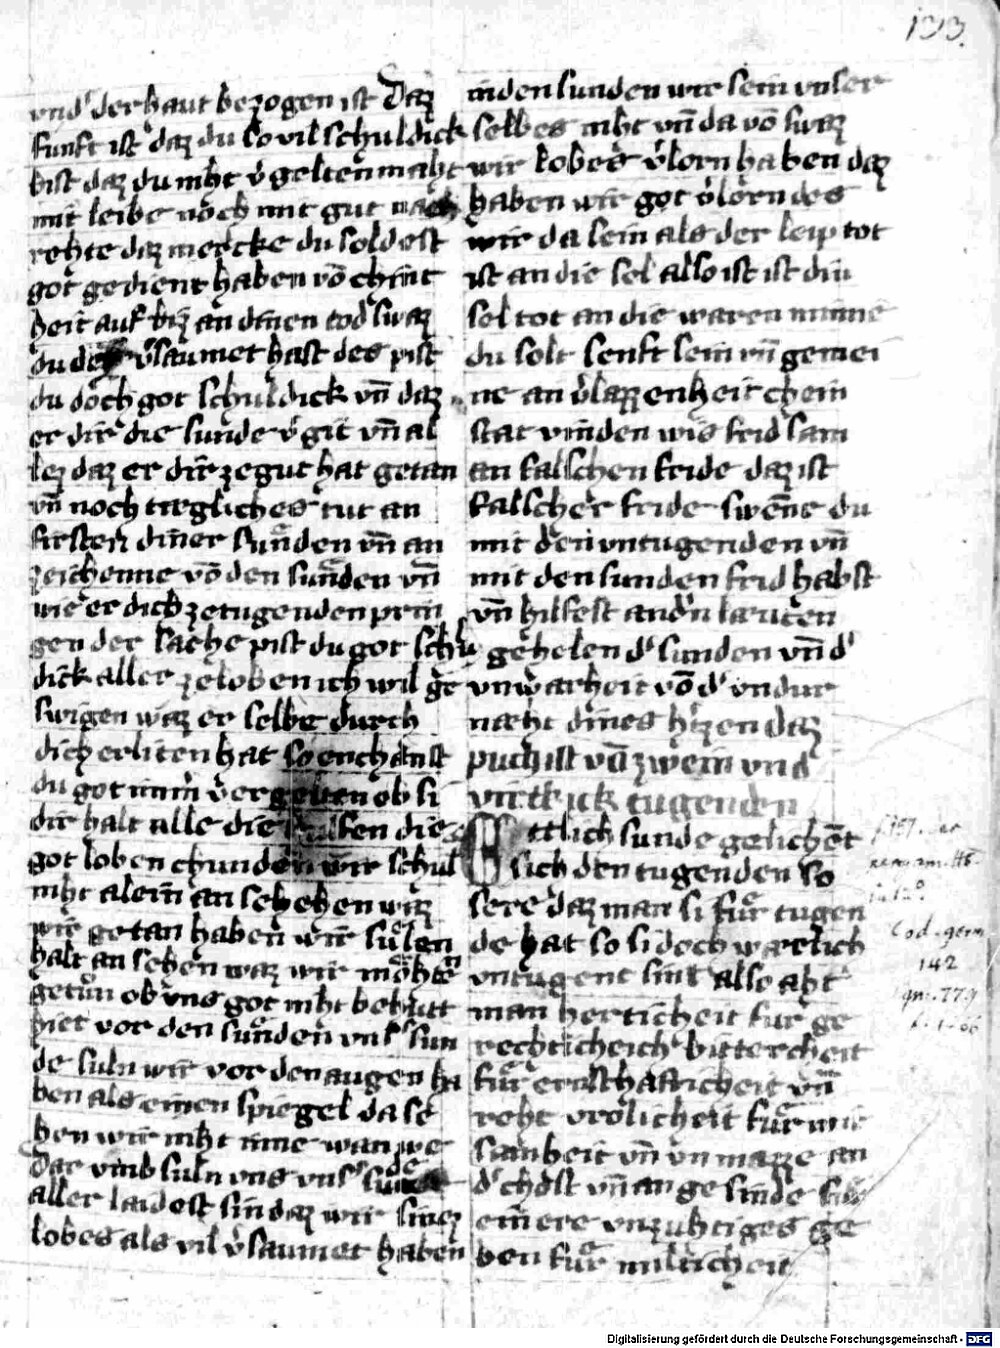 133.
vnd der haut bezogen ist Daz
funft ist daz du so vil schuldick
bist daz du niht v̾gelten maht
mit leibe noch mit gut nach
rehte daz mercke du soldest
got gedient haben vō chint
heit auf biz an dinen tod swaz
du der v̾saumet hast des pist
du doch got schuldick vn̄ daz
er dir die sunde v̾git vn̄ al
lez daz er dir ze gut hat getan
vn̄ noch tægliches tut an
fristen diner sunden vn̄ an
zeichenne vō den sunden vn̄
wie er dich ze tugenden prin
gen der sache pist du got schul
dick aller ze loben ich wil ge
swigen waz er selbe durch
dich erliten hat so enchanst
du got nimm̄ vergelten ob si
dir halt alle die hulfen die
got loben chunden wir schul
niht alein an sehehen waz
wir getan haben wir sulen
halt an sehen waz wir mohten
getun ob vns got niht behutt
hiet vor den sunden vnser sun
de suln wir vor den augen ha
ben als einen spiegel da se
hen wir niht inne wan we
dar vmb suln vns vnser sunde
aller laidest sin daz wir sinez
lobes als vil v̾saumet haben
in den sunden wir sein vnser
selbes niht vn̄ da vō swaz
wir lobes v̾lorn haben daz
haben wir got v̾lorn des
wir da sein als der leip tot
ist an die sel also ist ist diu
sel tot an die waren minne
du solt senft sein vn̄ gemei
ne an v̾lazzenheit chein
stat vinden wis frid sam
an falschen fride daz ist
falscher fride swenne du
mit den vntugenden vn̄
mit den sunden frid habst
vn̄ hilfest andn̄ læuten
gehelen d' sunden vn̄ d'
vnwarheit vō d' vndur
næht dines h̾zen daz
puch ist vō zwein vnd
virtzick tugenden
Ettlich sunde gelichent
sich den tugenden so
sere daz man si fur tugen
de hat so si doch wærlich
vntugent sint also aht
man herticheit fur ge
rechticheich bittercheit
fur ernsthafticheit vn̄
reht vrolicheit fur mir
samheit vn̄ vnmazze an
d' chost vn̄ an gesinde
einere vnzuhtiges ge
ben fur milticheit
Cod. germ
142
cgm. 779
Digitalisierung gefördert durch die Deutsche Forschungsgemeinschaft - DFG